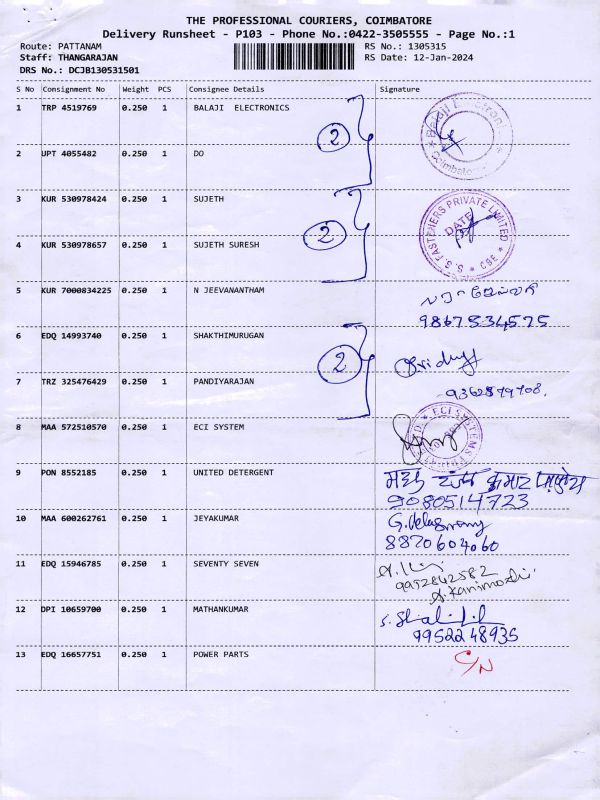 THE PROFESSIONAL COURIERS, COIMBATORE
Delivery Runsheet - P103 - Phone No.:0422-3505555 - Page No.:1
Route: PATTANAM RS No.: 1305315
Staff: THANGARAJAN RS Date: 12-Jan-2024
DRS No.: DCJB130531501
S No Consignment No Weight PCS Consignee Details Signature
1 TRP 4519769 0.250 1 BALAJI ELECTRONICS
2
2 UPT 4055482 0.250 1 DO
3 KUR 530978424 0.250 1 SUJETH
S.S. FASTENERS PRIVATE LIMITED CBE
DATE
2
4 KUR 530978657 0.250 1 SUJETH SURESH
5 KUR 7000834225 0.250 1 N JEEVANANTHAM
9867534575
6 EDQ 14993740 0.250 1 SHAKTHIMURUGAN
2
7 TRZ 325476429 0.250 1 PANDIYARAJAN
8 MAA 572510570 0.250 1 ECI SYSTEM
ECI SYSTEMS
9 PON 8552185 0.250 1 UNITED DETERGENT
9080514723
10 MAA 600262761 0.250 1 JEYAKUMAR
8870604060
11 EDQ 15946785 0.250 1 SEVENTY SEVEN
9952842582
12 DPI 10659700 0.250 1 MATHANKUMAR
9952248935
13 EDQ 16657751 0.250 1 POWER PARTS
C/N